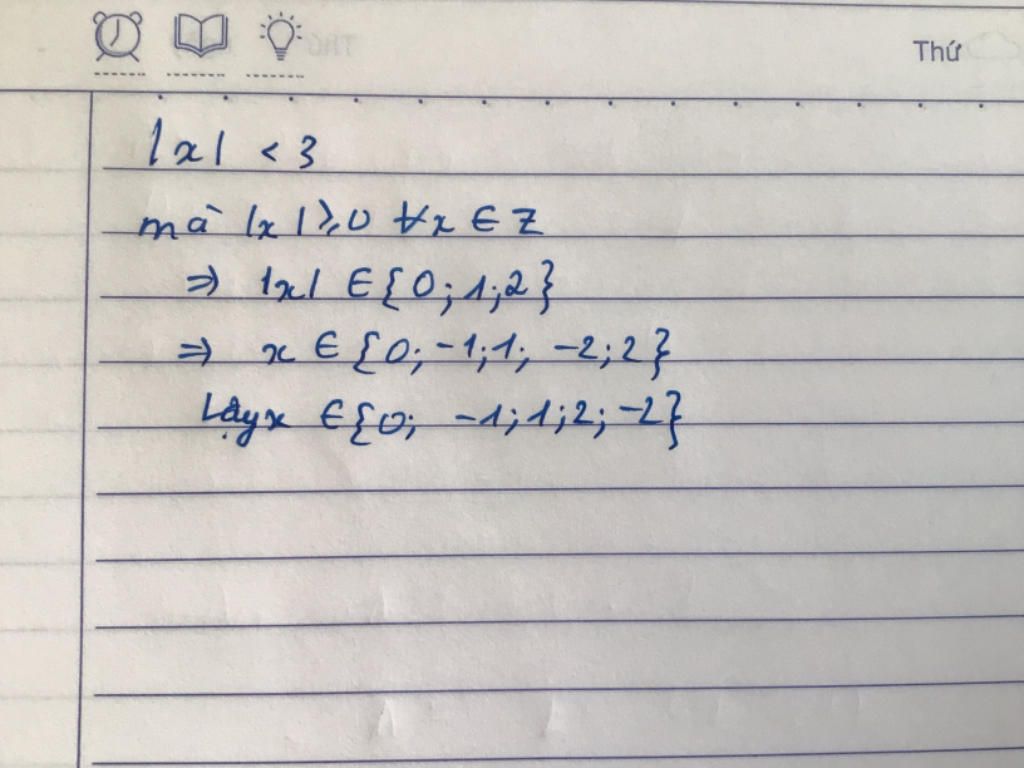 Thứ
|x| < 3
mà |x| ⩾ 0 ∀x ∈ Z
⇒ |x| ∈ {0; 1; 2}
⇒ x ∈ {0; -1; 1; -2; 2}
Vậy x ∈ {0; -1; 1; 2; -2}